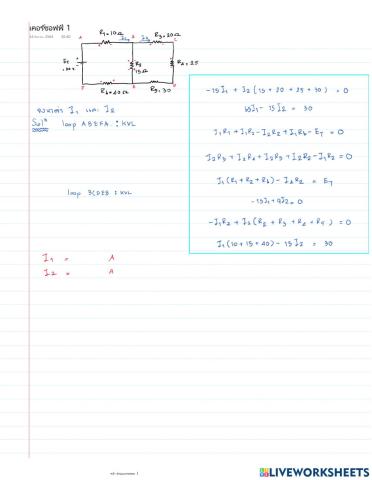 เคอร์ชอฟฟ์ 1
R₁=10Ω
I₁
I₂
R₃=20Ω
A
B
C
E₁
R₂
15Ω
R₄=25
F
E
D
R₆=40Ω
R₅=30
จงหาค่า I₁ และ I₂
loop ABEFA : KVL
loop BCDEB : KVL
I₁ = A
I₂ = A
-15I₁ + I₂(15+20+25+30) = 0
65I₁ - 15I₂ = 30
I₁R₁ + I₁R₂ - I₂R₂ + I₁R₆ - E₁ = 0
I₂R₃ + I₂R₄ + I₂R₅ + I₂R₂ - I₁R₂ = 0
I₁(R₁+R₂+R₆) - I₂R₂ = E₁
-15I₁ + 9I₂ = 0
-I₁R₂ + I₂(R₂ + R₃ + R₄ + R₅) = 0
I₁(10+15+40) - 15I₂ = 30
LIVEWORKSHEETS